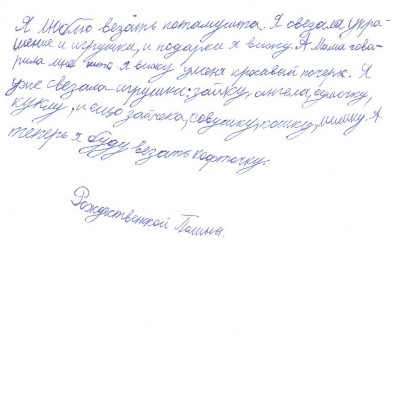 Я люблю везать потамушта. Я свезала укра-
шение и игрушки, и подарки я вижу. А Мама гова-
рила мне што я вижу у меня красивый почерк. Я
уже свезала игрушки: зайку, ангела, сумочку,
куклу, и ещо зайчека, совушку, кошку, мишку. А
теперь я буду везать кофточку.
Рождественской Полины.